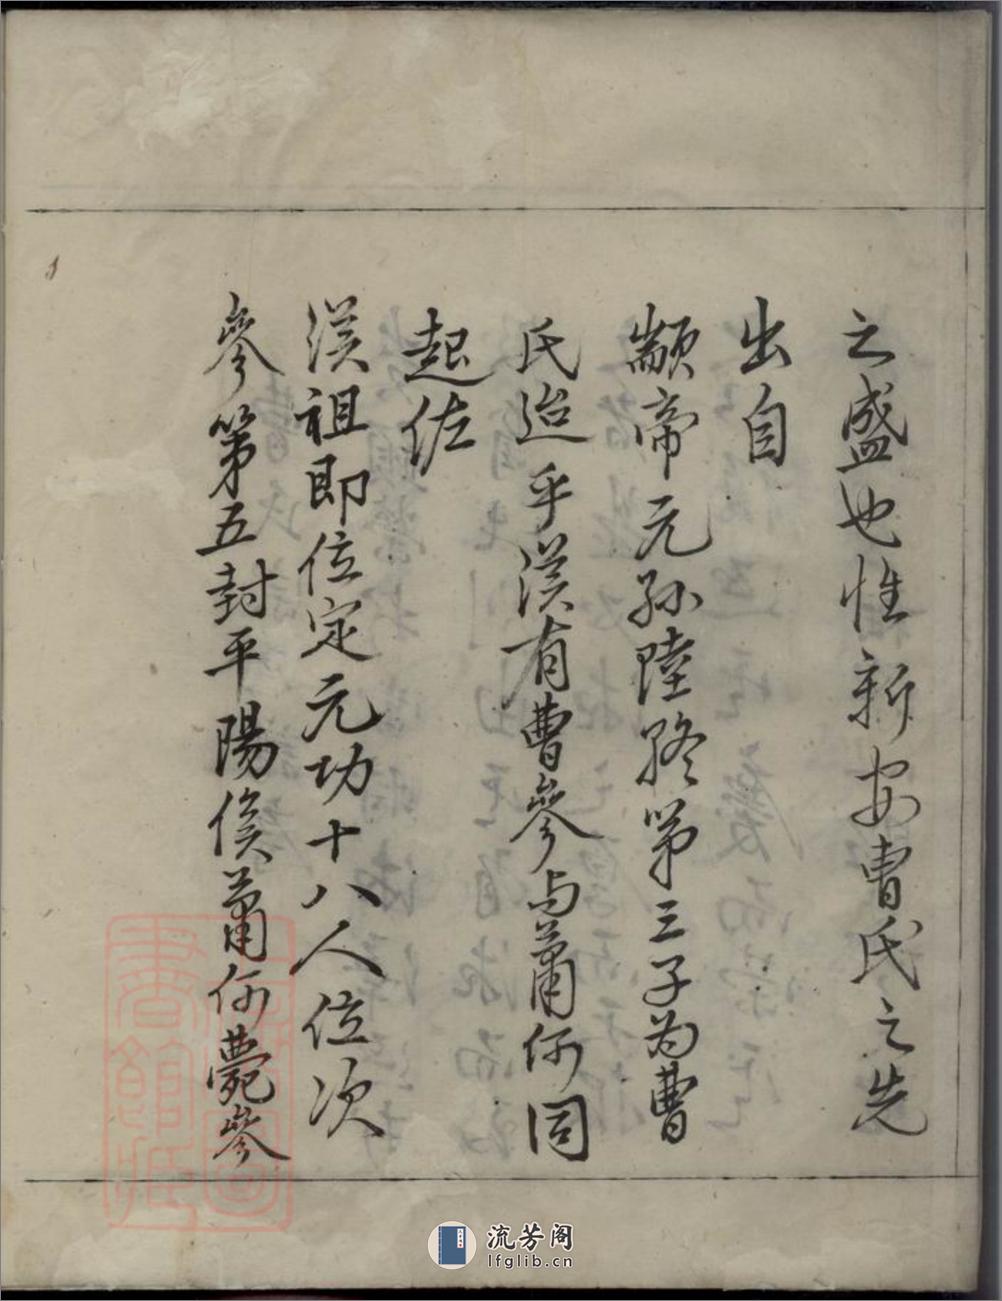 之盛也惟新安曹氏之先
出自
顓帝元孫陸終第三子为曹
氏迨乎漢有曹參与蕭何同
起佐
漢祖即位定元功十八人位次
參第五封平陽侯蕭何薨參
流芳阁
lfglib.cn